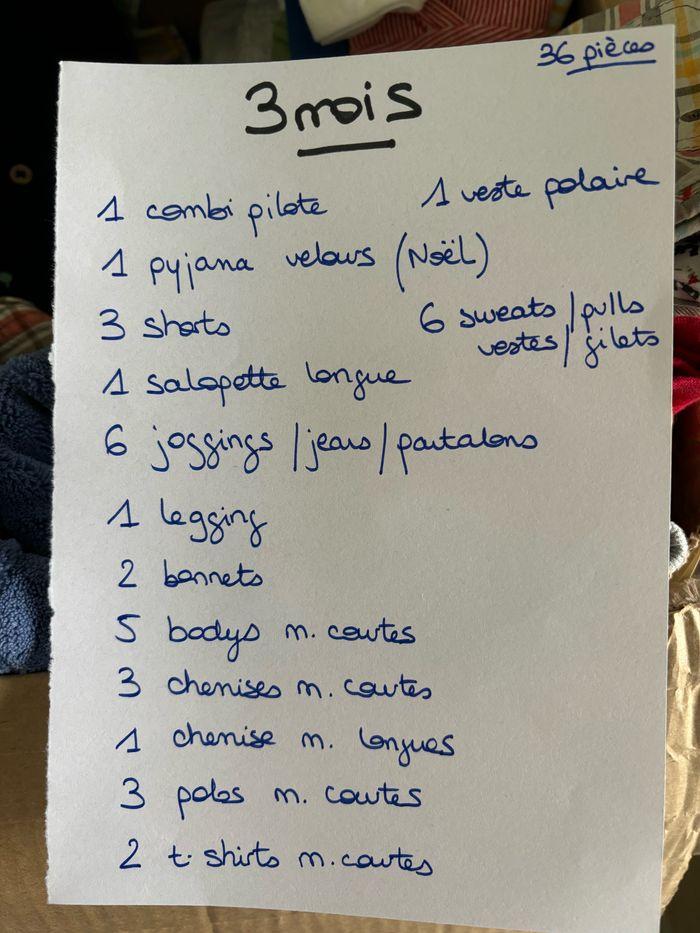 36 pièces
3 mois
1 combi pilote
1 veste polaire
1 pyjama velours (Noël)
3 shorts
6 sweats/pulls
vestes/gilets
1 salopette longue
6 joggings/jeans/pantalons
1 legging
2 bonnets
5 bodys m. courtes
3 chemises m. courtes
1 chemise m. longues
3 polos m. courtes
2 t-shirts m. courtes